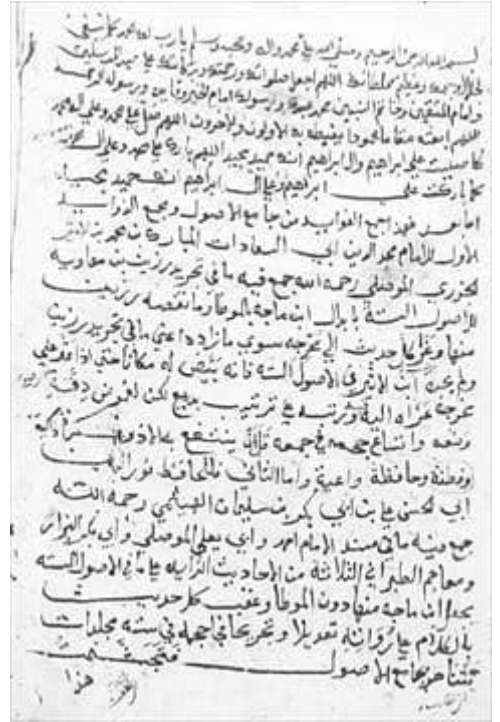 بسم الله الرحمن الرحيم وصلى الله على محمد واله وصحبه وسلم يا رب لك الحمد كما ينبغي
لجلال وجهك وعظيم سلطانك اللهم اجعل صلواتك ورحمتك وبركاتك على سيد المرسلين
وامام المتقين وخاتم النبيين محمد عبدك ورسولك امام الخير وقايد ورسول الرحمة
اللهم ابعثه مقاما محمودا يغبطه به الاولون والاخرون اللهم صل على محمد وعلى ال محمد
كما صليت على ابراهيم وال ابراهيم انك حميد مجيد اللهم بارك على محمد وعلى ال محمد
كما باركت على ابراهيم وعلى ال ابراهيم انك حميد مجيد
اما بعد فهذا جمع الفوايد من جامع الاصول ومجمع الزوايد
الاول للامام مجد الدين ابي السعادات المبارك بن محمد بن الاثير
الجزري الموصلي رحمه الله جمع فيه ما في تجريد رزين بن معاوية
للاصول الستة بابدال ابن ماجه بالموطا وما نقصه رزين
منها وعزا كل حديث الى مخرجه سوى ما زاد اعني ما في تجريد رزين
ولم يجده ابن الاثير في الاصول الستة فانه بيض له مكانا حتى اذا عثر على
مخرجه عزاه اليه ورتبه على ترتيب بديع لكن لغموض دقة
وضعه واتساع حجمه في جمعه قلما ينتفع به الا ذو
وفطنة وحافظة واعية واما الثاني فللحافظ نور الدين
ابي الحسن علي بن ابي بكر بن سليمان الهيثمي رحمه الله
جمع فيه ما في مسند الامام احمد وابي يعلى الموصلي وابي بكر البزار
ومعاجم الطبراني الثلاثة من الاحاديث الزايدة على ما في الاصول الستة
بجعل ابن ماجه منها دون الموطا وعقب كل حديث
بالكلام على رواته تعديلا وتجريحا في حجمه في ستة مجلدات
جامع الاصول
هذا